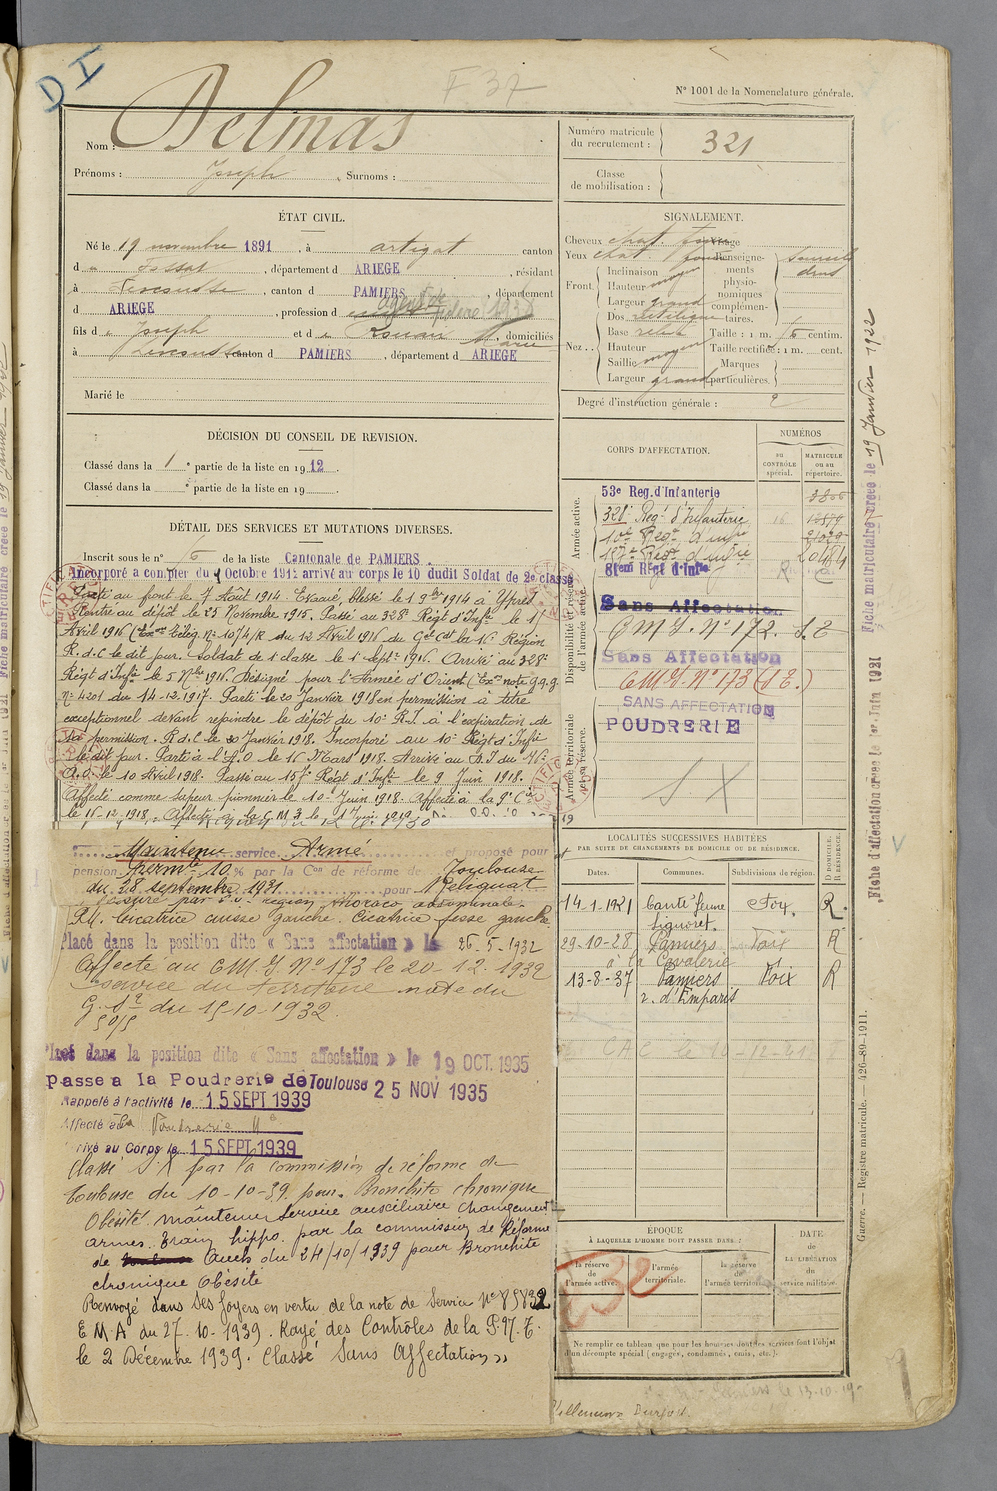 DI
F 37
N° 1001 de la Nomenclature générale.
Nom : Delmas
Prénoms : Joseph , Surnoms :
Numéro matricule du recrutement : 321
Classe de mobilisation :
ÉTAT CIVIL.
Né le 19 novembre 1891 , à Artigat canton
d u Fossat , département d ARIEGE , résidant
à Lescousse , canton d PAMIERS , département
d ARIEGE , profession d
fils d e Joseph et d e Marie , domiciliés
à Lescousse canton d PAMIERS , département d ARIEGE
Marié le
SIGNALEMENT.
Cheveux chat.
Yeux chat.
Front : Inclinaison moyen
Hauteur
Largeur grand
Dos rectiligne
Nez : Base relevé
Hauteur
Saillie moyen
Largeur grand
Renseignements physionomiques complémentaires.
Taille : 1 m. centim.
Taille rectifiée : 1 m. cent.
Marques particulières.
Degré d'instruction générale : 2
DÉCISION DU CONSEIL DE REVISION.
Classé dans la 1e partie de la liste en 1912.
Classé dans la e partie de la liste en 19
DÉTAIL DES SERVICES ET MUTATIONS DIVERSES.
Inscrit sous le n° 6 de la liste Cantonale de PAMIERS.
Incorporé à compter du 9 Octobre 1912 arrivé au corps le 10 dudit Soldat de 2e classe
Parti au front le 7 Août 1914. Evacué blessé le 1 9bre 1914 à Ypres
Rentré au dépôt le 25 Novembre 1915. Passé au 328e Régt d'Infie le 1er
Avril 1916 (Exon Télég. N° 1074/R du 12 Avril 1916 du Gal Ct la 16e Région
R. d. C le dit jour. Soldat de 1e classe le 1er septe 1916. Arrivé au 328e
Régt d'Infie le 5 Nbre 1916. Désigné pour l'Armée d'Orient (Exon note G.Q.G.
N° 4201 du 14-12-1917. Parti le 20 Janvier 1918 en permission à titre
exceptionnel devant rejoindre le dépôt du 10e R.I. à l'expiration de
sa permission. R d. C le 30 Janvier 1918. Incorporé au 10e Régt d'Infie
le dit jour. Parti à l'A.O. le 16 Mars 1918. Arrivé au D.I du 76e
A.O. le 10 Avril 1918. Passé au 157e Régt d'Infie le 9 Juin 1918.
Affecté comme sapeur pionnier le 10 Juin 1918. Affecté à la 9e Cie
le 16-12-1918. Affecté à la C.M.3 le 1er 1919
Maintenu service Armé et proposé pour
pension permte 10% par la Con de réforme de Toulouse
du 28 septembre 1931 pour 1° Reliquat
blessure par région thoraco abdominale.
Cicatrice cuisse gauche. Cicatrice fesse gauche.
Placé dans la position dite « Sans affectation » le 26-5-1932
Affecté au CMI N° 173 le 20-12-1932
service du territoire note du
G. du 15-10-1932.
Placé dans la position dite « Sans affectation » le 19 OCT. 1935
passe a la Poudrerie de Toulouse 25 NOV 1935
Rappelé à l'activité le 15 SEPT 1939
Affecté à la Poudrerie
Arrivé au Corps le 15 SEPT 1939
Classé S.X par la commission de réforme de
Toulouse du 10-10-39 pour. Bronchite chronique
Obésité. maintenu service auxiliaire changement
armes. Train hippo. par la commission de Réforme
de Auch du 24/10/1939 pour Bronchite
chronique Obésité
Renvoyé dans ses foyers en vertu de la note de Service N° 85832
E M A du 27-10-1939. Rayé des Contrôles de la P.N.T.
le 2 Décembre 1939. Classé "Sans Affectation"
CORPS D'AFFECTATION.
NUMÉROS
au CONTRÔLE spécial.
MATRICULE ou au répertoire.
Armée active.
53e Reg. d'Infanterie
328e Regt d'Infanterie 16
10e Regt d'Infie 21029
157e Regt d'Infie 20484
81eme Regt d'Infie
Disponibilité et réserve de l'armée active.
Sans Affectation
C M I. N° 172. S. E
Sans Affectation
C M I. N° 173 (S E.)
SANS AFFECTATION
Armée territoriale et sa réserve.
POUDRERIE
S X
LOCALITÉS SUCCESSIVES HABITÉES
PAR SUITE DE CHANGEMENTS DE DOMICILE OU DE RÉSIDENCE.
Dates. Communes. Subdivisions de région. D DOMICILE. R RÉSIDENCE.
14-1-1921 Cante Ferme Signoret. Foix. R.
29-10-28 Pamiers à la Cavalerie Foix R
13-8-37 Pamiers r. d'Emparis Foix R
ÉPOQUE
À LAQUELLE L'HOMME DOIT PASSER DANS :
la réserve de l'armée active.
l'armée territoriale.
la réserve de l'armée territoriale.
DATE DE LA LIBÉRATION du service militaire.
32
Ne remplir ce tableau que pour les hommes dont les services font l'objet
d'un décompte spécial (engagés, condamnés, omis, etc.).
Villeneuve Durfort.
Fiche matriculaire créée le 19 Janvier 1922
Fiche d'affectation créée le 1er Juin 1921
Guerre. — Registre matricule. — 426-89-1911.